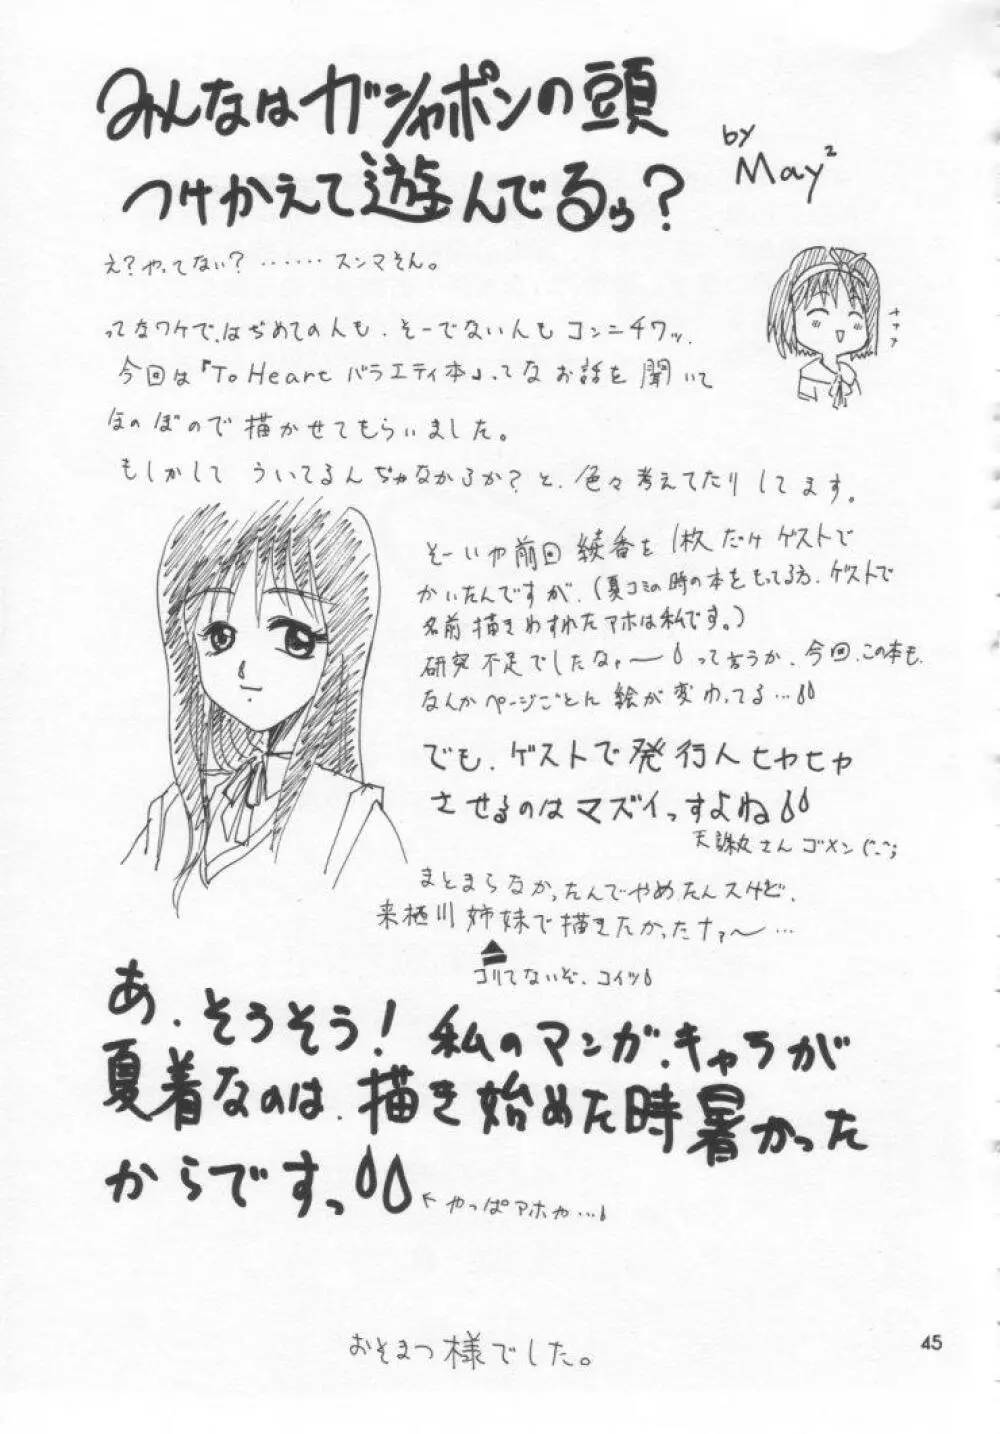 みんなはガシャポンの頭
つけかえて遊んでるぅ?
by
May²
え?やってない?……スンマそん。
ってなワケで、はぢめての人も、そーでない人もコンニチワッ、
今回は『To Heart バラエティ本』、てなお話を聞いて
ほのぼので描かせてもらいました。
もしかして ういてるんぢゃなかろか?と、色々考えてたりしてます。
そーいや前回 綾香を1枚だけゲストで
かいたんですが、(夏コミの時の本をもってる方、ゲストで
名前描きわすれたアホは私です。)
研究不足でしたなァ〜 って言うか、今回、この本も、
なんかページごとに 絵が変わってる…
でも、ゲストで発行人ヒヤヒヤ
させるのはマズイっすよね
天誅丸さんゴメン(^_^;
まとまらなかったんでやめたんスけど、
来栖川姉妹で描きたかったナァ〜…
コリてないぞ、コイツ
あ、そうそう!私のマンガ、キャラが
夏着なのは、描き始めた時暑かった
からですっ
←やっぱアホか…
おそまつ様でした。
45